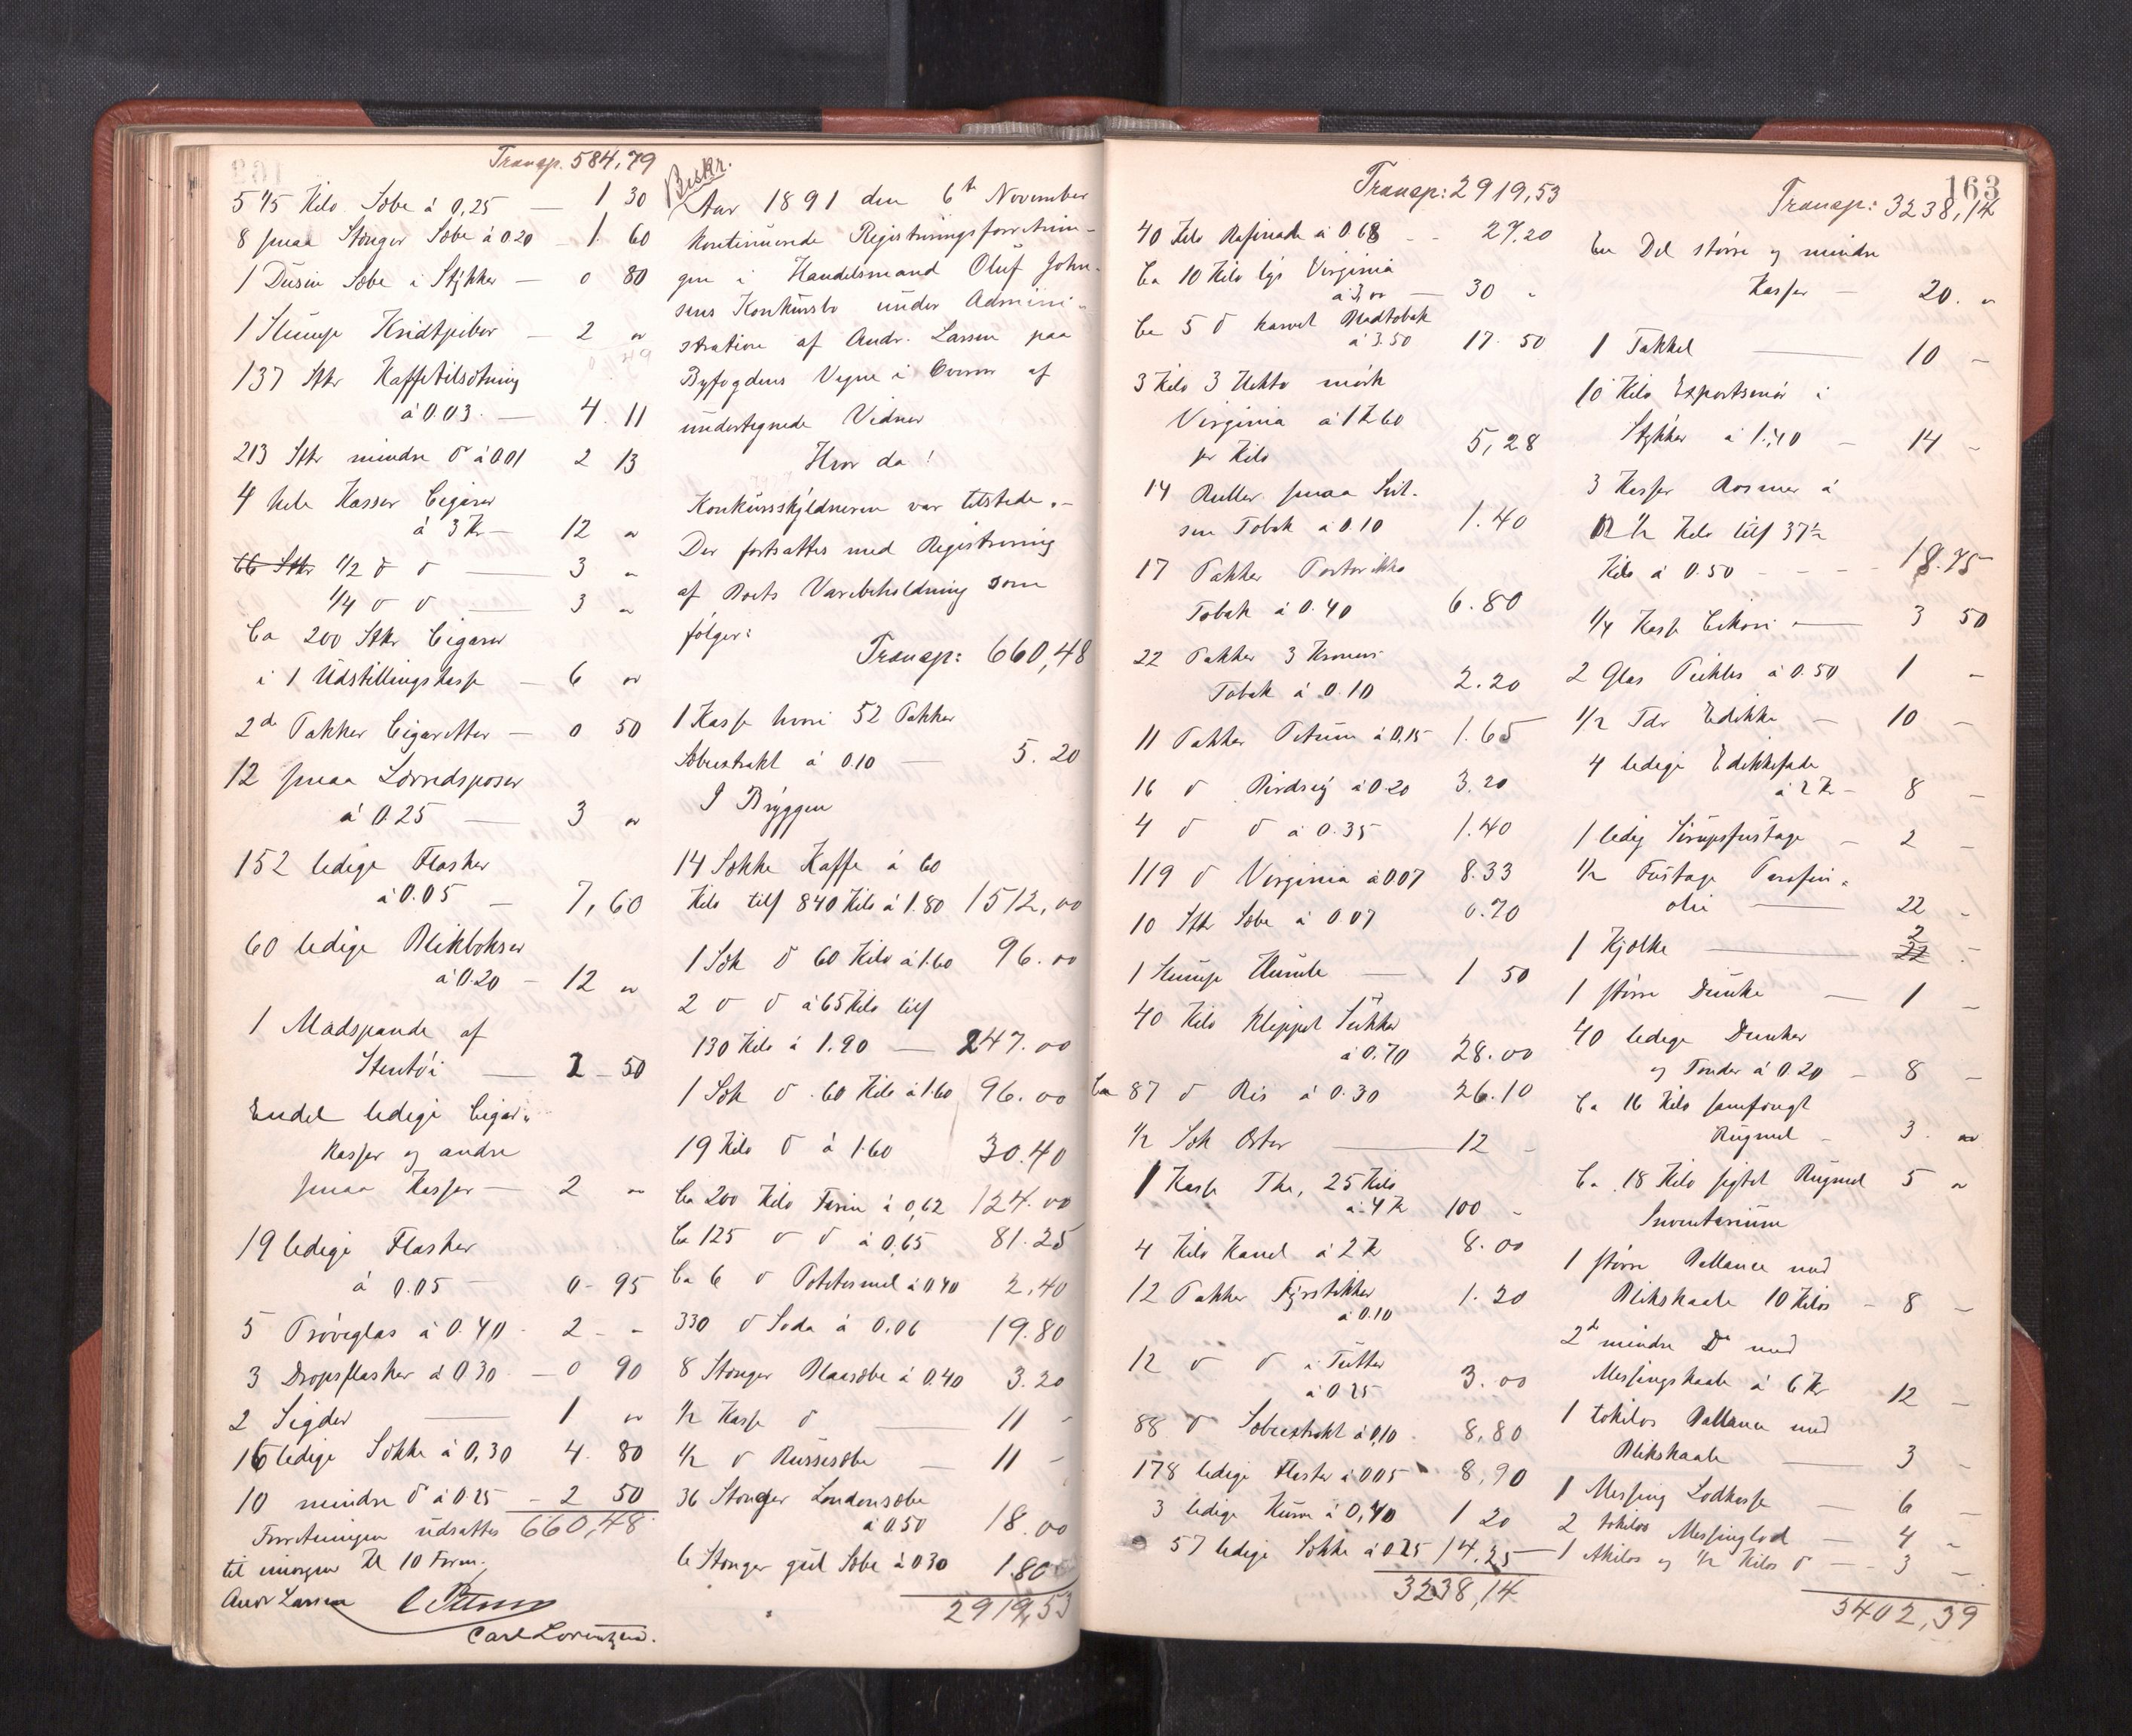 Transp. 584,79
5 45 Kilo Sæbe á 0,25 — 1 30
8 smaa Stænger Sæbe á 0 20 — 1. 60
1 Dusin Sæbe i Stykker — 0 80
1 Slump Kridtpiber — 2 "
137 Stkr Kaffetilsætning
á 0.03. — 4. 11
213 Stkr mindre do á 0.01 2 13
4 hele Kasser Cigarer
á 3 Kr — 12 "
1/2 do do — 3 "
1/4 do do — 3 "
Ca 200 Stkr Cigarer
i 1 Udstillingskasse — 6 "
2de Pakker Cigaretter — 0 50
12 smaa Lærredsposer
á 0.25 — 3 "
152 ledige Flasker
á 0.05 — 7,60
60 ledige Blikbokser
á 0.20 — 12 "
1 Madspande af
Stentøi — 2 - 50
Endel ledige Cigar-
kasser og andre
smaa Kasser — 2 "
19 ledige Flasker
á 0.05 — 0 - 95
5 Prøveglas á 0.40 - 2 - -
3 Dropsflasker á 0 30 — 0 90
2 Sigder — 1 "
16 ledige Sække á 0,30 4. 80
10 mindre do á 0.25 — 2 50
660,48
Forretningen udsattes
til imorgen Kl 10 Form.
Andr Larsen
Carl Lorentzen.
Beskr.
Aar 1891 den 6te November
kontinuerede Registreringsforretnin-
gen i Handelsmand Oluf John-
sens Konkursbo under Admini-
stration af Andr. Larsen paa
Byfogdens Vegne i Overvær af
undertegnede Vidner
Hvor da!
Konkursskyldneren var tilstede.-
Der fortsattes med Registrering
af Boets Varebeholdning som
følger:
Transp: 660,48
1 Kasse hvori 52 Pakker
Sæbeextrakt á 0.10 — 5. 20
I Bryggen
14 Sække Kaffe á 60
Kilo tils 840 Kilo á 1.80 1512,00
1 Sæk do 60 Kilo á 1.60 96.00
2 do do á 65 Kilo tils
130 Kilo á 1.90 — 247.00
1 Sæk do 60 Kilo á 1.60 96.00
19 Kilo do á 1.60 30.40
Ca 200 Kilo Farin á 0,62 124.00
Ca 125 do do á 0,65 81.25
Ca 6 do Potetesmel á 0.40 2,40
330 do Soda á 0,06 19.80
8 Stænger Blaasæbe á 0.40 3.20
1/2 Kasse do — 11 -
1/2 do Russesæbe — 11 -
36 Stænger Londonsæbe
á 0.50 18.00
6 Stænger gul Sæbe á 0 30 1.80
2919,53
163
Transp: 2919,53
40 Kilo Rafinade á 0.68 - - 27,20
Ca 10 Kilo lys Virginia
á 3,00 — 30 -
Ca 5 do karvet Bladtobak
á 3.50 17. 50
3 Kilo 3 Hekto mørk
Virginia á 1 Kr 60
pr Kilo 5,28
14 Ruller smaa
Tobak á 0.10 1.40
17 Pakker Portorikko
Tobak á 0.40 6.80
22 Pakker 3 Kroners
Tobak á 0.10 2.20
11 Pakker Petum á 0,15 1.65
16 do Birdseij á 0.20 3.20
4 do do á 0.35 1.40
119 do Virginia á 0 07 8.33
10 Stkr Sæbe á 0.07 0.70
1 Slump Humle — 1 50
40 Kilo Kleppet Sukker
á 0.70 28.00
Ca 87 do Ris á 0.30 26.10
1/2 Sæk Erter — 12 -
1 Kasse The, 25 Kilo
á 4 Kr 100 -
4 Kilo Kanel á 2 Kr 8.00
12 Pakker Fyrstikker
á 0.10 1.20
12 do do i Tutter
á 0.25 3.00
88 do Sæbeextrakt á 0,10 8,80
178 ledige Flasker á 0.05 8,90
3 ledige Kurve á 0,40 1 20
57 ledige Sække á 0.25 14,25
3238,14
Transp: 3238,14
En Del større og mindre
Kasser — 20. "
1 Takkel — 10 -
10 Kilo Exportsmør i
Stykker á 1.40 — 14 -
3 Kasser Rosiner á
12 1/2 Kilo tils 37 1/2
Kilo á 0.50 - - - 18.75
1/4 Kasse Cikori — 3 50
2 Glas Pickles á 0.50 1 -
1/2 Tdr Edikke — 10 -
4 ledige Edikkefade
á 2 Kr — 8 -
1 ledig Sirupsfustage — 2 -
1/2 Fustage Parafin-
olie — 22 -
1 Kjælke — 2
1 større Dunke — 1 -
40 ledige Dunker
og Tønder á 0.20 — 8 -
Ca 16 Kilo samfængt
Rugmel — 3. "
Ca 18 Kilo sigtet Rugmel 5 "
Inventarium
1 større Ballance med
Blikskaale 10 Kilos — 8 -
2de mindre Do med
Messingskaale á 6 Kr 12 -
1 tokilos Ballance med
Blikskaale — 3 -
1 Messing Lodkasse — 6 -
2 tokilos Messinglod — 4 -
1 1kilos og 1/2 Kilos do — 3 -
3402,39